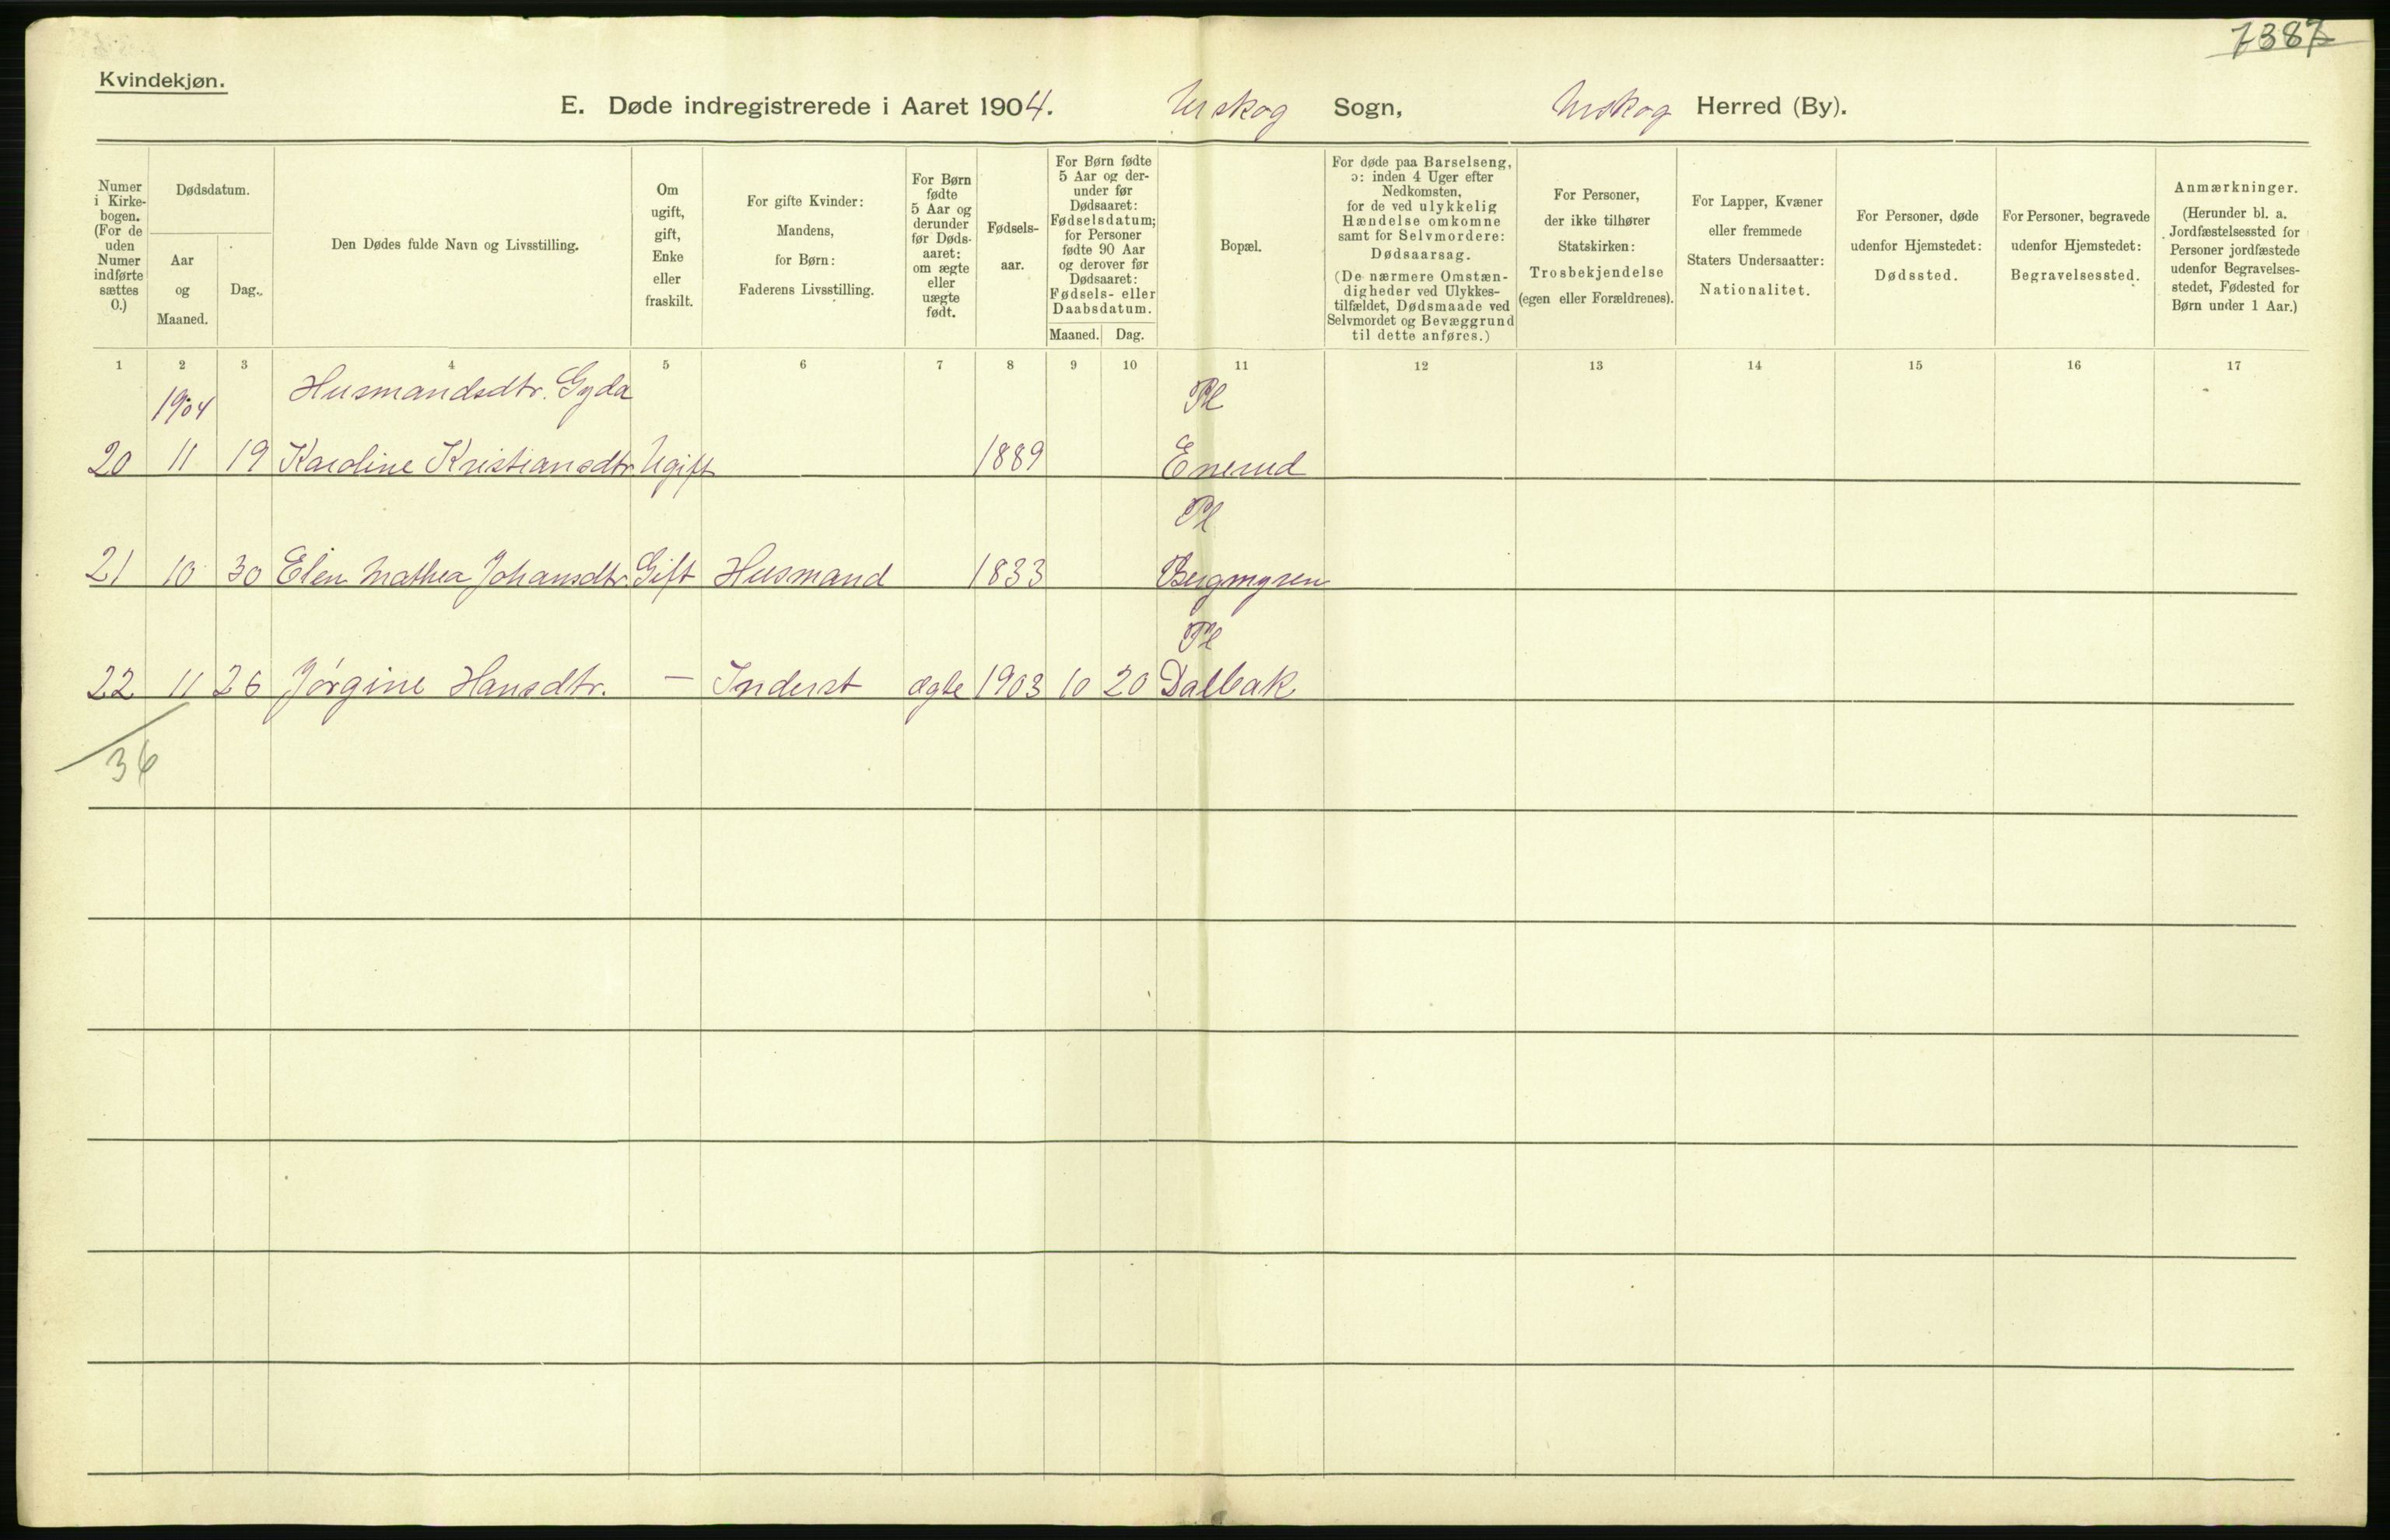 7387
Kvindekjøn.
E. Døde indregistrerede i Aaret 1904. Urskog Sogn, Urskog Herred (By).
Numer i Kirkebogen. (For de uden Numer indførte sættes 0.)
Dødsdatum.
Aar og Maaned.
Dag.
Den Dødes fulde Navn og Livsstilling.
Om ugift, gift, Enke eller fraskilt.
For gifte Kvinder: Mandens, for Børn: Faderens Livsstilling.
For Børn fødte 5 Aar og derunder før Dødsaaret: om ægte eller uægte født.
Fødselsaar.
For Børn fødte 5 Aar og derunder før Dødsaaret: Fødselsdatum; for Personer fødte 90 Aar og derover før Dødsaaret: Fødsels- eller Daabsdatum.
Maaned. Dag.
Bopæl.
For døde paa Barselseng, ɔ: inden 4 Uger efter Nedkomsten, for de ved ulykkelig Hændelse omkomne samt for Selvmordere: Dødsaarsag. (De nærmere Omstændigheder ved Ulykkestilfældet, Dødsmaade ved Selvmordet og Bevæggrund til dette anføres.)
For Personer, der ikke tilhører Statskirken: Trosbekjendelse (egen eller Forældrenes).
For Lapper, Kvæner eller fremmede Staters Undersaatter: Nationalitet.
For Personer, døde udenfor Hjemstedet: Dødssted.
For Personer, begravede udenfor Hjemstedet: Begravelsessted.
Anmærkninger. (Herunder bl. a. Jordfæstelsessted for Personer jordfæstede udenfor Begravelsesstedet, Fødested for Børn under 1 Aar.)
1 2 3 4 5 6 7 8 9 10 11 12 13 14 15 16 17
1904 Husmandsdtr. Gyda Pl
20 11 19 Karoline Kristiansdtr. Ugift 1889 Enerud
Pl
21 10 30 Elen Mathea Johansdtr. Gift Husmand 1833 Bergmyren
Pl
22 11 26 Jørgine Hansdtr. — Inderst ægte 1903 10 20 Dalbak
36